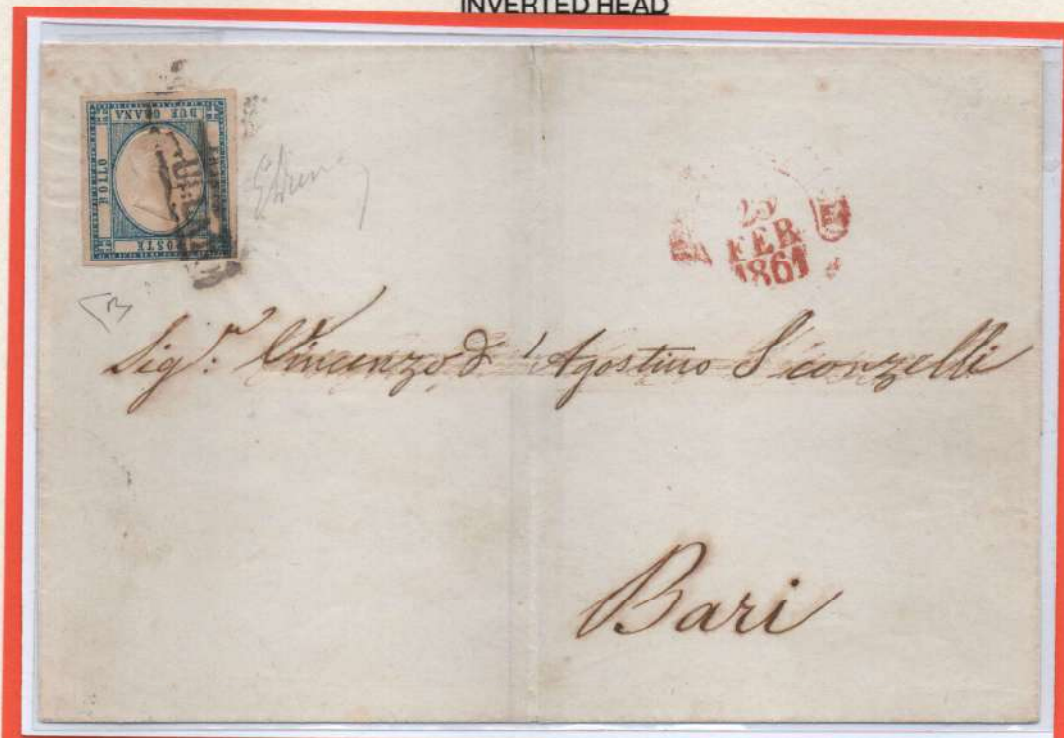 INVERTED HEAD
DUE GRANA
BOLLO
POSTE
25
FEB
1861
Sig.r Vincenzo d'Agostino Sconzelli
Bari